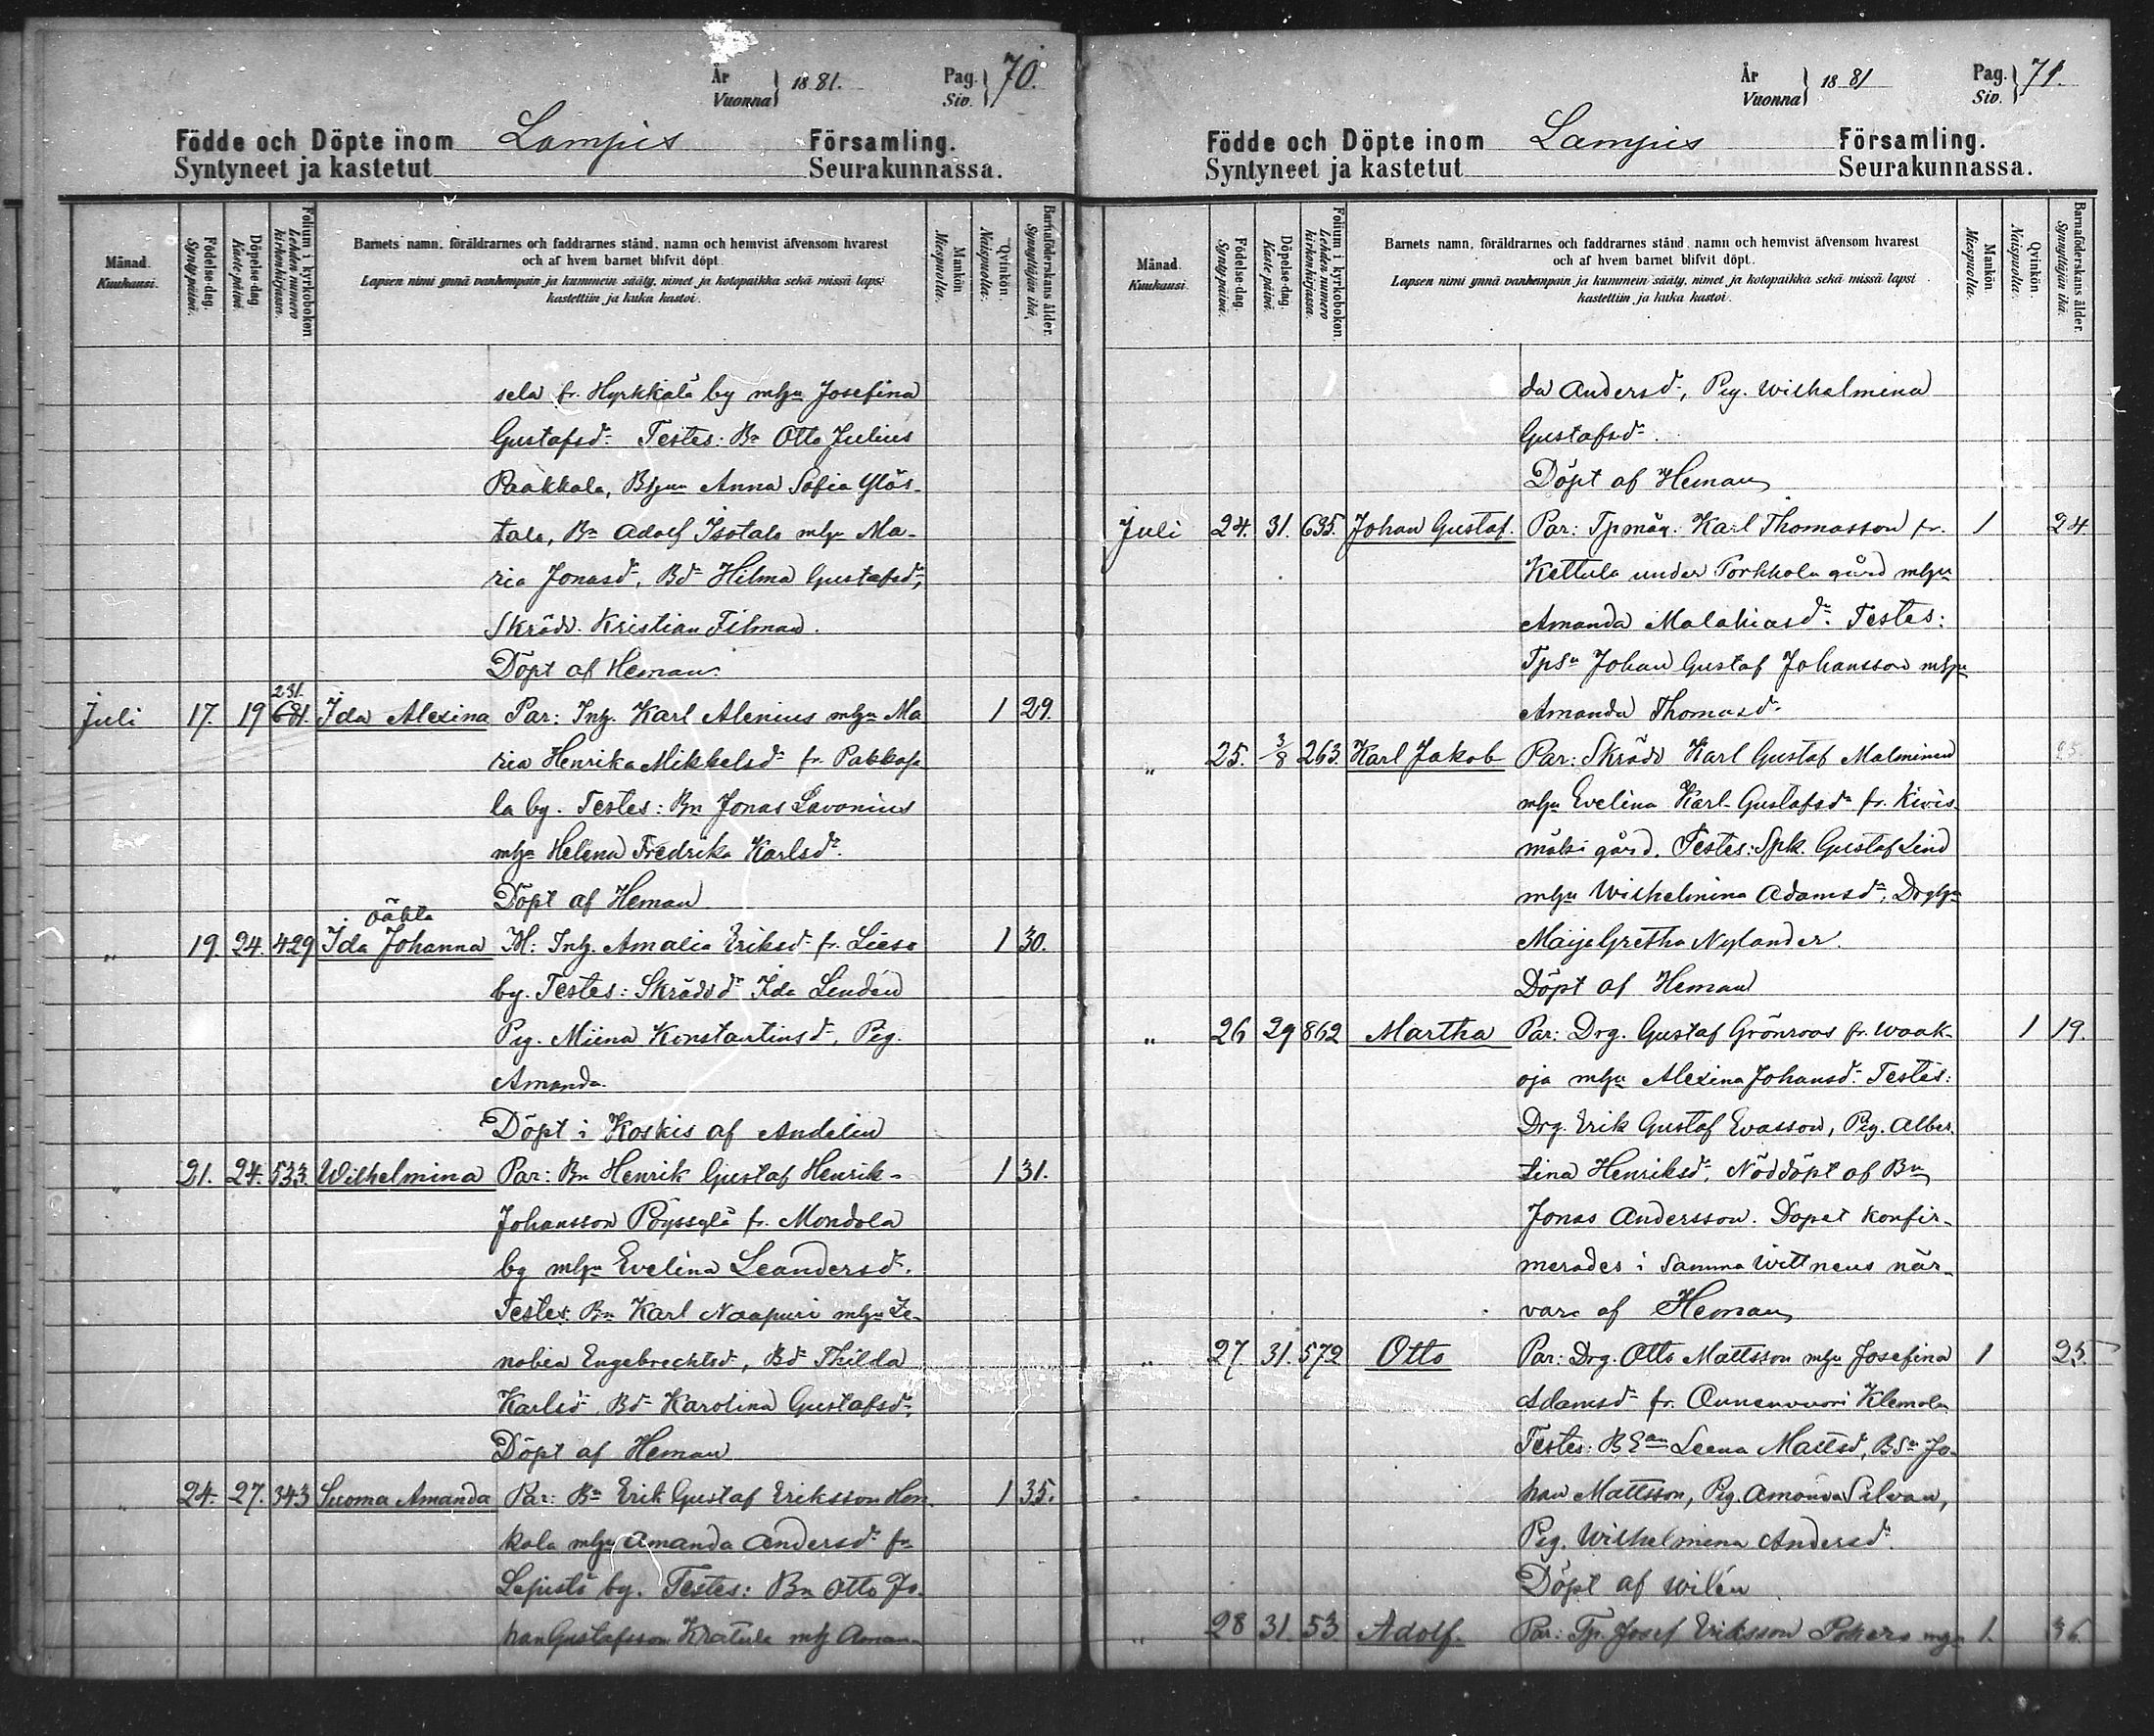 År
Vuonna } 1881.
Pag.
Siv. } 70.
Födde och Döpte inom Lampis Församling.
Syntyneet ja kastetut Seurakunnassa.
Månad. Kuukausi.
Födelse-dag. Syntypäivä.
Döpelse-dag. Kastepäivä.
Folium i kyrkoboken. Lehden numero kirkonkirjassa.
Barnets namn, föräldrarnes och faddrarnes stånd, namn och hemvist äfvensom hvarest
och af hvem barnet blifvit döpt.
Lapsen nimi ynnä vanhempain ja kummein sääty, nimet ja kotopaikka sekä missä lapsi
kastettiin ja kuka kastoi.
Mankön. Miespuolta.
Qvinkön. Naispuolta.
Barnaföderskans ålder. Synnyttäjän ikä.
sela fr. Hyrkkälä by mhu Josefina
Gustafsdr. Testes: Bn Otto Julius
Pääkkala, Bhu Anna Sofia Ylös-
talo, Bn Adolf Isotalo mhu Ma-
ria Jonasdr, Bdr Hilma Gustafsdr,
Skrädd. Kristian Filman.
Döpt af Heman.
Juli 17. 19 231. 681. Ida Alexina Par: Inh. Karl Alenius mhu Ma 1 29.
ria Henrika Mikkelsdr fr. Pakkase
la by. Testes: Bn Jonas Lavonius
mhu Helena Fredrika Karlsdr.
Döpt af Heman
oäkta
„ 19. 24. 429 Ida Johanna M: Inh. Amalia Eriksdr fr. Lieso 1 30.
by. Testes: Skräddr Ida Lindén
Pig. Miina Konstantinsdr, Pig.
Amanda.
Döpt i Koskis af Andelin
„ 21. 24. 533. Wilhelmina Par: Bn Henrik Gustaf Henrik- 1 31.
Johansson Pöyssylä fr. Mondola
by mhu Evelina Leandersdr.
Testes: Bn Karl Naapuri mhu Ze-
nobia Engebrechtsd, Bdr Thilda
Karlsdr, Bdr Karolina Gustafsdr,
Döpt af Heman
„ 24. 27. 343 Suoma Amanda Par: Bn Erik Gustaf Eriksson Hon 1 35.
kola mhu Amanda Andersdr fr
Lepistö by. Testes: Bn Otto Jo-
han Gustafsson Kratula mhu Aman-
År
Vuonna } 1881
Pag.
Siv. } 71.
Födde och Döpte inom Lampis Församling.
Syntyneet ja kastetut Seurakunnassa.
Månad. Kuukausi.
Födelse-dag. Syntypäivä.
Döpelse-dag. Kastepäivä.
Folium i kyrkoboken. Lehden numero kirkonkirjassa.
Barnets namn, föräldrarnes och faddrarnes stånd, namn och hemvist äfvensom hvarest
och af hvem barnet blifvit döpt.
Lapsen nimi ynnä vanhempain ja kummein sääty, nimet ja kotopaikka sekä missä lapsi
kastettiin ja kuka kastoi.
Mankön. Miespuolta.
Qvinkön. Naispuolta.
Barnaföderskans ålder. Synnyttäjän ikä.
da Andersdr, Pig. Wilhelmina
Gustafsdr.
Döpt af Heman
Juli 24. 31. 635. Johan Gustaf. Par: Tpmåg: Karl Thomasson fr. 1 24.
Kettula under Porkkola gård mhu
Amanda Malakiasdr. Testes:
Tpsn Johan Gustaf Johansson mhu
Amanda Thomasdr.
„ 25. 3/8 263. Karl Jakob Par: Skrädd Karl Gustaf Malminen 25.
mhu Evelina Karl-Gustafsdr fr. Kivis
mäki gård. Testes: Spk. Gustaf Lind
mhu Wilhelmina Adamsdr, Drghu
Maija Gretha Nylander.
Döpt af Heman
„ 26 29 862 Martha Par: Drg. Gustaf Grönroos fr. Waak- 1 19.
oja mhu Alexina Johansdr. Testes:
Drg. Erik Gustaf Evasson, Pig. Alber-
tina Henriksdr. Nöddöpt af Bn
Jonas Andersson. Dopet konfir-
merades i samma wittnens när-
varo af Heman
„ 27 31. 572 Otto Par: Drg. Otto Mattsson mhu Josefina 1 25.
Adamsdr fr. Onnenvuori Klemola
Testes: BEn Leena Mattsd, BSn Jo-
han Mattsson, Pig. Amanda Silvan,
Pig. Wilhelmina Andersdr.
Döpt af Wilén
„ 28 31. 53. Adolf. Par: Tp. Josef Eriksson mhu 1. 36.